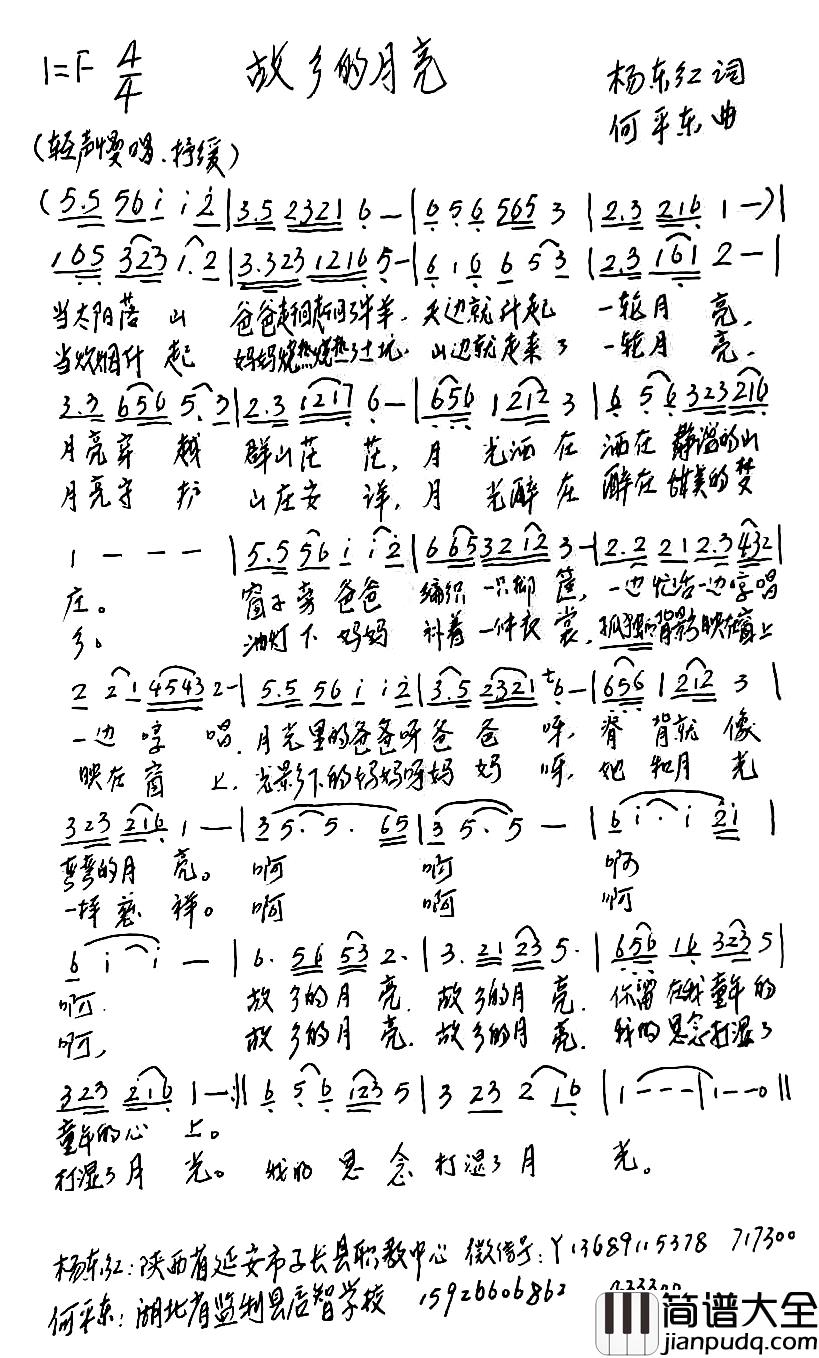 1=F 4/4 故乡的月亮 杨东红词
何平东曲
(轻声慢唱、抒缓)
(5.5 56i i 2|3.5 2321 6—|656 565 3|2.3 216 1—)|
165 323 1.2|3.323 1216 5—|6 16 6 53|2.3 161 2—|
当太阳落山 爸爸赶回赶回了羊羊,天边就升起 一轮月亮,
当炊烟升起 妈妈烧热烧热了土坑,山边就走来了一轮月亮.
3.3 656 5.3|2.3 1217 6—|656 1 212 3|6 56 323 216
月亮穿越 群山茫茫,月光洒在 洒在静谧的山
月亮守护 山庄安详,月光醉在 醉在甜美的梦
1 - - - |5.5 56 i i2|665 32 12 3—|2.2 21 2.3 432|
庄。 窗子旁爸爸 编织一只柳筐,一边忙活一边哼唱
乡。 油灯下妈妈 补着一件衣裳,孤独的背影映在窗上
2 21 4543 2—|5.5 56 i i2|3.5 2321 6—|656 1 212 3|
一边哼唱.月光里的爸爸呀爸爸呀,脊背就像
映在窗上,光影下的妈妈呀妈妈呀,她和月光
323 216 1—|3 5.5. 65|3 5.5—|6 i.i 2i|
弯弯的月亮。啊 啊 啊
一样慈祥。啊 啊 啊
6 i i —|6. 56 53 2.|3. 21 23 5.|656 16 323 5|
啊. 故乡的月亮.故乡的月亮.你留在我童年的
啊, 故乡的月亮.故乡的月亮.我的思念打湿了
323 216 1—:||6 56 123 5|3 23 2 16|1---|1--0||
童年的心上。
打湿了月光。我的思念打湿了月光。
杨东红:陕西省延安市子长县职教中心 微信号:Y13689115378 717300
何平东:湖北省监利县启智学校 15926606862
简谱大全
jianpudq.com